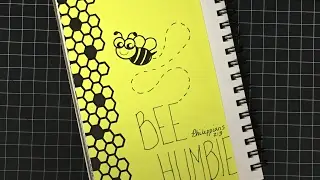 BEE
Philippians
2:3
HUMBLE